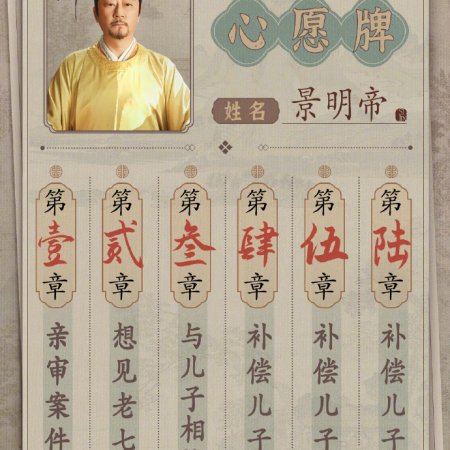 心愿牌
姓名 景明帝
第壹章
亲审案件
第贰章
想见老七
第叁章
与儿子相
第肆章
补偿儿子
第伍章
补偿儿子
第陆章
补偿儿子